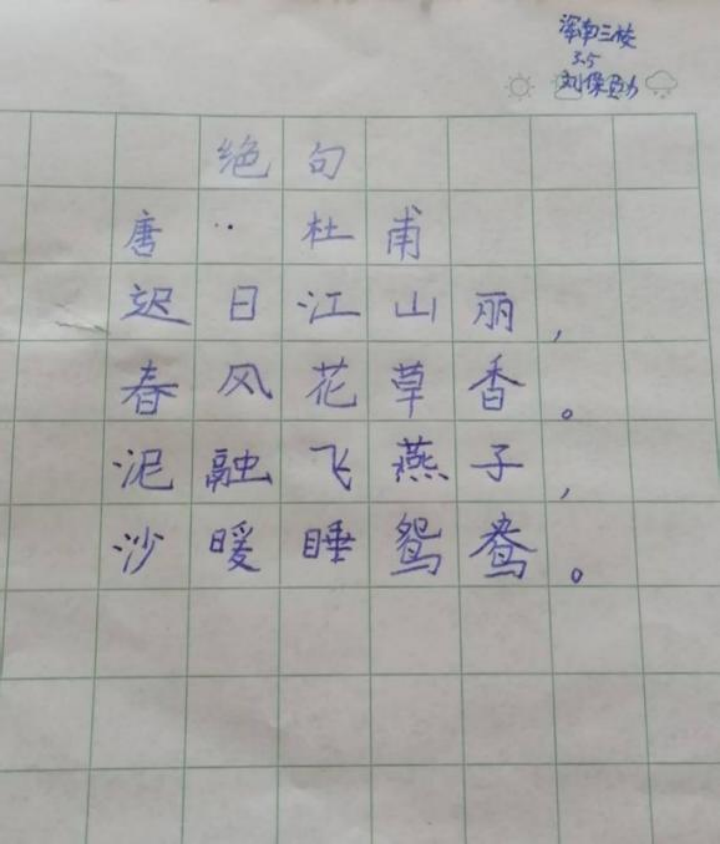 浑南三校
3.5
刘保勋
绝句
唐·杜甫
迟日江山丽,
春风花草香。
泥融飞燕子,
沙暖睡鸳鸯。